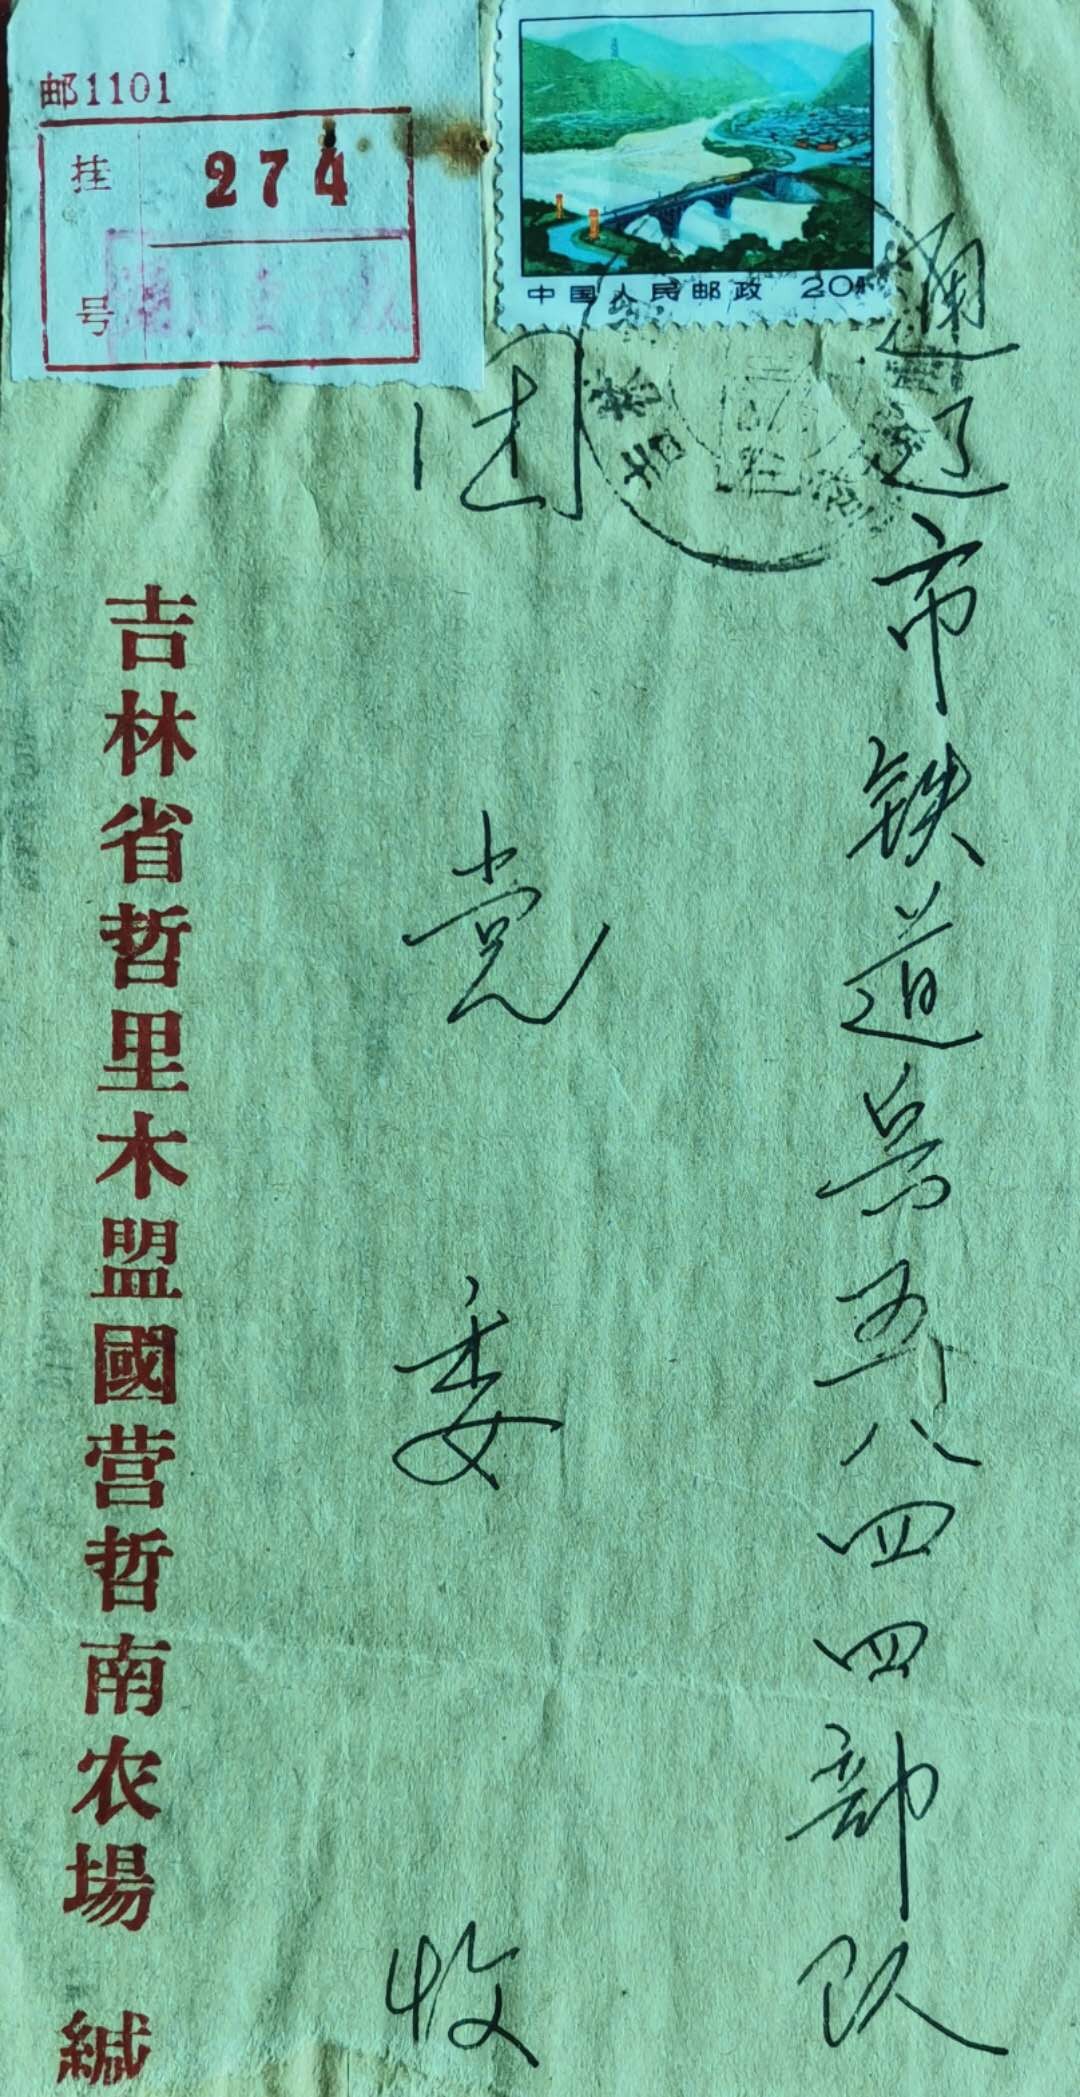 邮1101
挂 274
号
中国人民邮政 20
通辽市铁道兵五八四四部队
团党委 收
吉林省哲里木盟國营哲南农場 緘